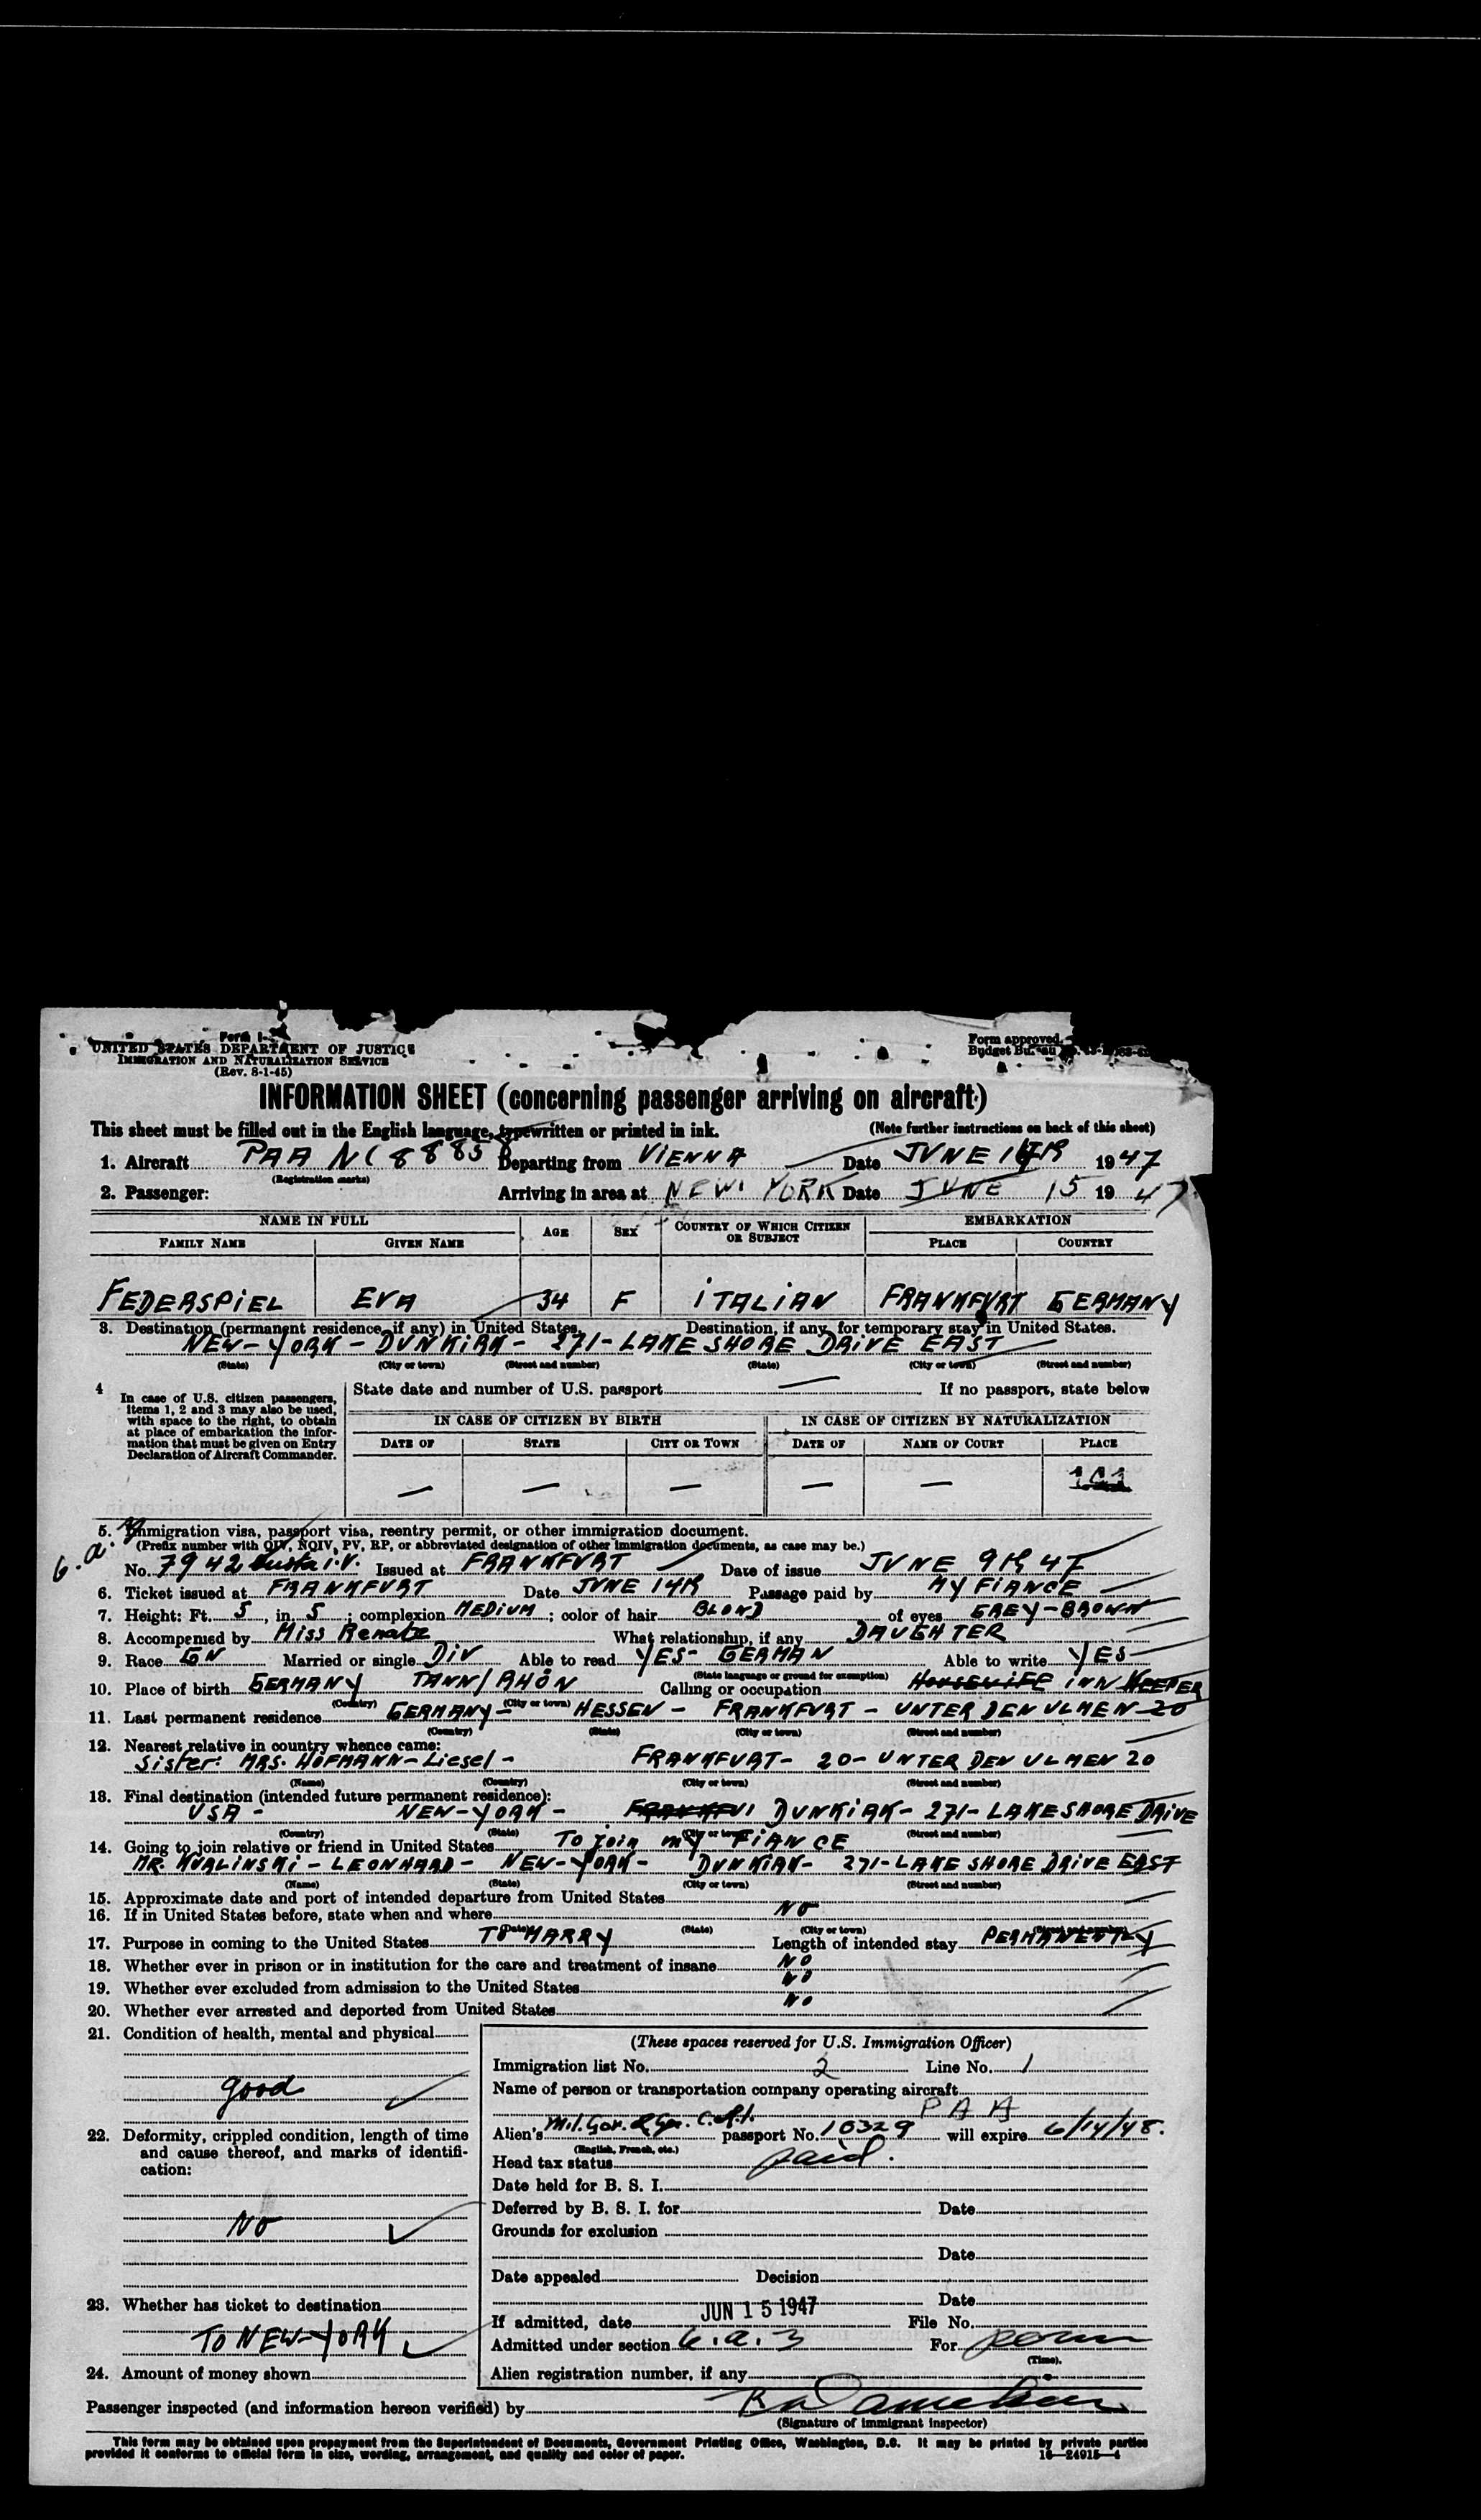 Form I-
UNITED STATES DEPARTMENT OF JUSTICE
IMMIGRATION AND NATURALIZATION SERVICE
(Rev. 8-1-45)
Form approved.
Budget Bureau
INFORMATION SHEET (concerning passenger arriving on aircraft)
This sheet must be filled out in the English language, typewritten or printed in ink. (Note further instructions on back of this sheet)
1. Aircraft PAA NC 88858 Departing from VIENNA Date JUNE 14th 1947
(Registration marks)
2. Passenger: Arriving in area at NEW YORK Date JUNE 15 1947
NAME IN FULL AGE SEX COUNTRY OF WHICH CITIZEN OR SUBJECT EMBARKATION
FAMILY NAME GIVEN NAME PLACE COUNTRY
FEDERSPIEL EVA 34 F ITALIAN FRANKFURT GERMANY
3. Destination (permanent residence, if any) in United States. Destination, if any, for temporary stay in United States.
NEW-YORK - DUNKIRK - 271 - LAKE SHORE DRIVE EAST
(State) (City or town) (Street and number) (State) (City or town) (Street and number)
4 In case of U.S. citizen passengers, items 1, 2 and 3 may also be used, with space to the right, to obtain at place of embarkation the information that must be given on Entry Declaration of Aircraft Commander.
State date and number of U.S. passport — If no passport, state below
IN CASE OF CITIZEN BY BIRTH IN CASE OF CITIZEN BY NATURALIZATION
DATE OF STATE CITY OR TOWN DATE OF NAME OF COURT PLACE
— — — — —
5. Immigration visa, passport visa, reentry permit, or other immigration document.
(Prefix number with QIV, NQIV, PV, RP, or abbreviated designation of other immigration documents, as case may be.)
6.a.3
No. 7942 I.V. Issued at FRANKFURT Date of issue JUNE 9th 47
6. Ticket issued at FRANKFURT Date JUNE 14th Passage paid by MY FIANCE
7. Height: Ft. 5, in. 5; complexion MEDIUM; color of hair BLOND of eyes GREY-BROWN
8. Accompanied by Miss Renate What relationship, if any DAUGHTER
9. Race GN Married or single DIV Able to read YES - GERMAN Able to write YES
(State language or ground for exemption)
10. Place of birth GERMANY TANN/RHÖN Calling or occupation HOUSEWIFE INNKEEPER
(Country) (City or town)
11. Last permanent residence GERMANY - HESSEN - FRANKFURT - UNTER DEN ULMEN 20
(Country) (State) (City or town) (Street and number)
12. Nearest relative in country whence came:
Sister: MRS. HOFMANN - Liesel - FRANKFURT - 20 - UNTER DEN ULMEN 20
(Name) (Country) (City or town) (Street and number)
13. Final destination (intended future permanent residence):
USA - NEW-YORK - FRANKFU DUNKIRK - 271 - LAKE SHORE DRIVE
(Country) (State) (City or town) (Street and number)
14. Going to join relative or friend in United States To join my FIANCE
MR. KUALINSKI - LEONHARD - NEW-YORK - DUNKIRK - 271 - LAKE SHORE DRIVE EAST
(Name) (State) (City or town) (Street and number)
15. Approximate date and port of intended departure from United States
16. If in United States before, state when and where NO
(Date) (State) (City or town) (Street and number)
17. Purpose in coming to the United States TO MARRY Length of intended stay PERMANENTLY
18. Whether ever in prison or in institution for the care and treatment of insane NO
19. Whether ever excluded from admission to the United States NO
20. Whether ever arrested and deported from United States NO
21. Condition of health, mental and physical
good
22. Deformity, crippled condition, length of time and cause thereof, and marks of identification:
NO
23. Whether has ticket to destination
TO NEW-YORK
24. Amount of money shown
(These spaces reserved for U.S. Immigration Officer)
Immigration list No. 2 Line No. 1
Name of person or transportation company operating aircraft
PAA
Alien's Mil. Gov. passport No. 10329 will expire 6/14/48.
(English, French, etc.)
Head tax status paid.
Date held for B. S. I.
Deferred by B. S. I. for Date
Grounds for exclusion
Date
Date appealed Decision
Date
If admitted, date JUN 15 1947 File No.
Admitted under section 6.a.3 For perm
(Time).
Alien registration number, if any
Passenger inspected (and information hereon verified) by
(Signature of immigrant inspector)
This form may be obtained upon prepayment from the Superintendent of Documents, Government Printing Office, Washington, D.C. It may be printed by private parties
provided it conforms to official form in size, wording, arrangement, and quality and color of paper. 16—24915-4